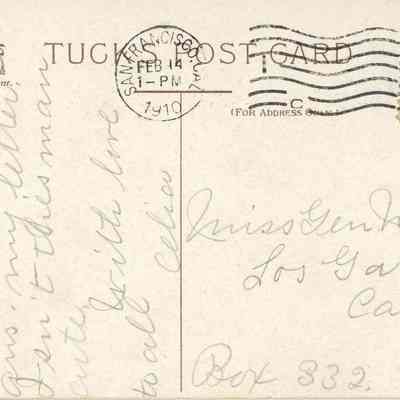 TUCK'S POST CARD
SAN FRANCISCO, CAL.
FEB 14
1-PM
1910
C
(FOR ADDRESS ONLY.)
ans. my letter.
Isn't this man
cute
With love
to all Celia
Miss Gen
Los Ga
Ca
Box 332.